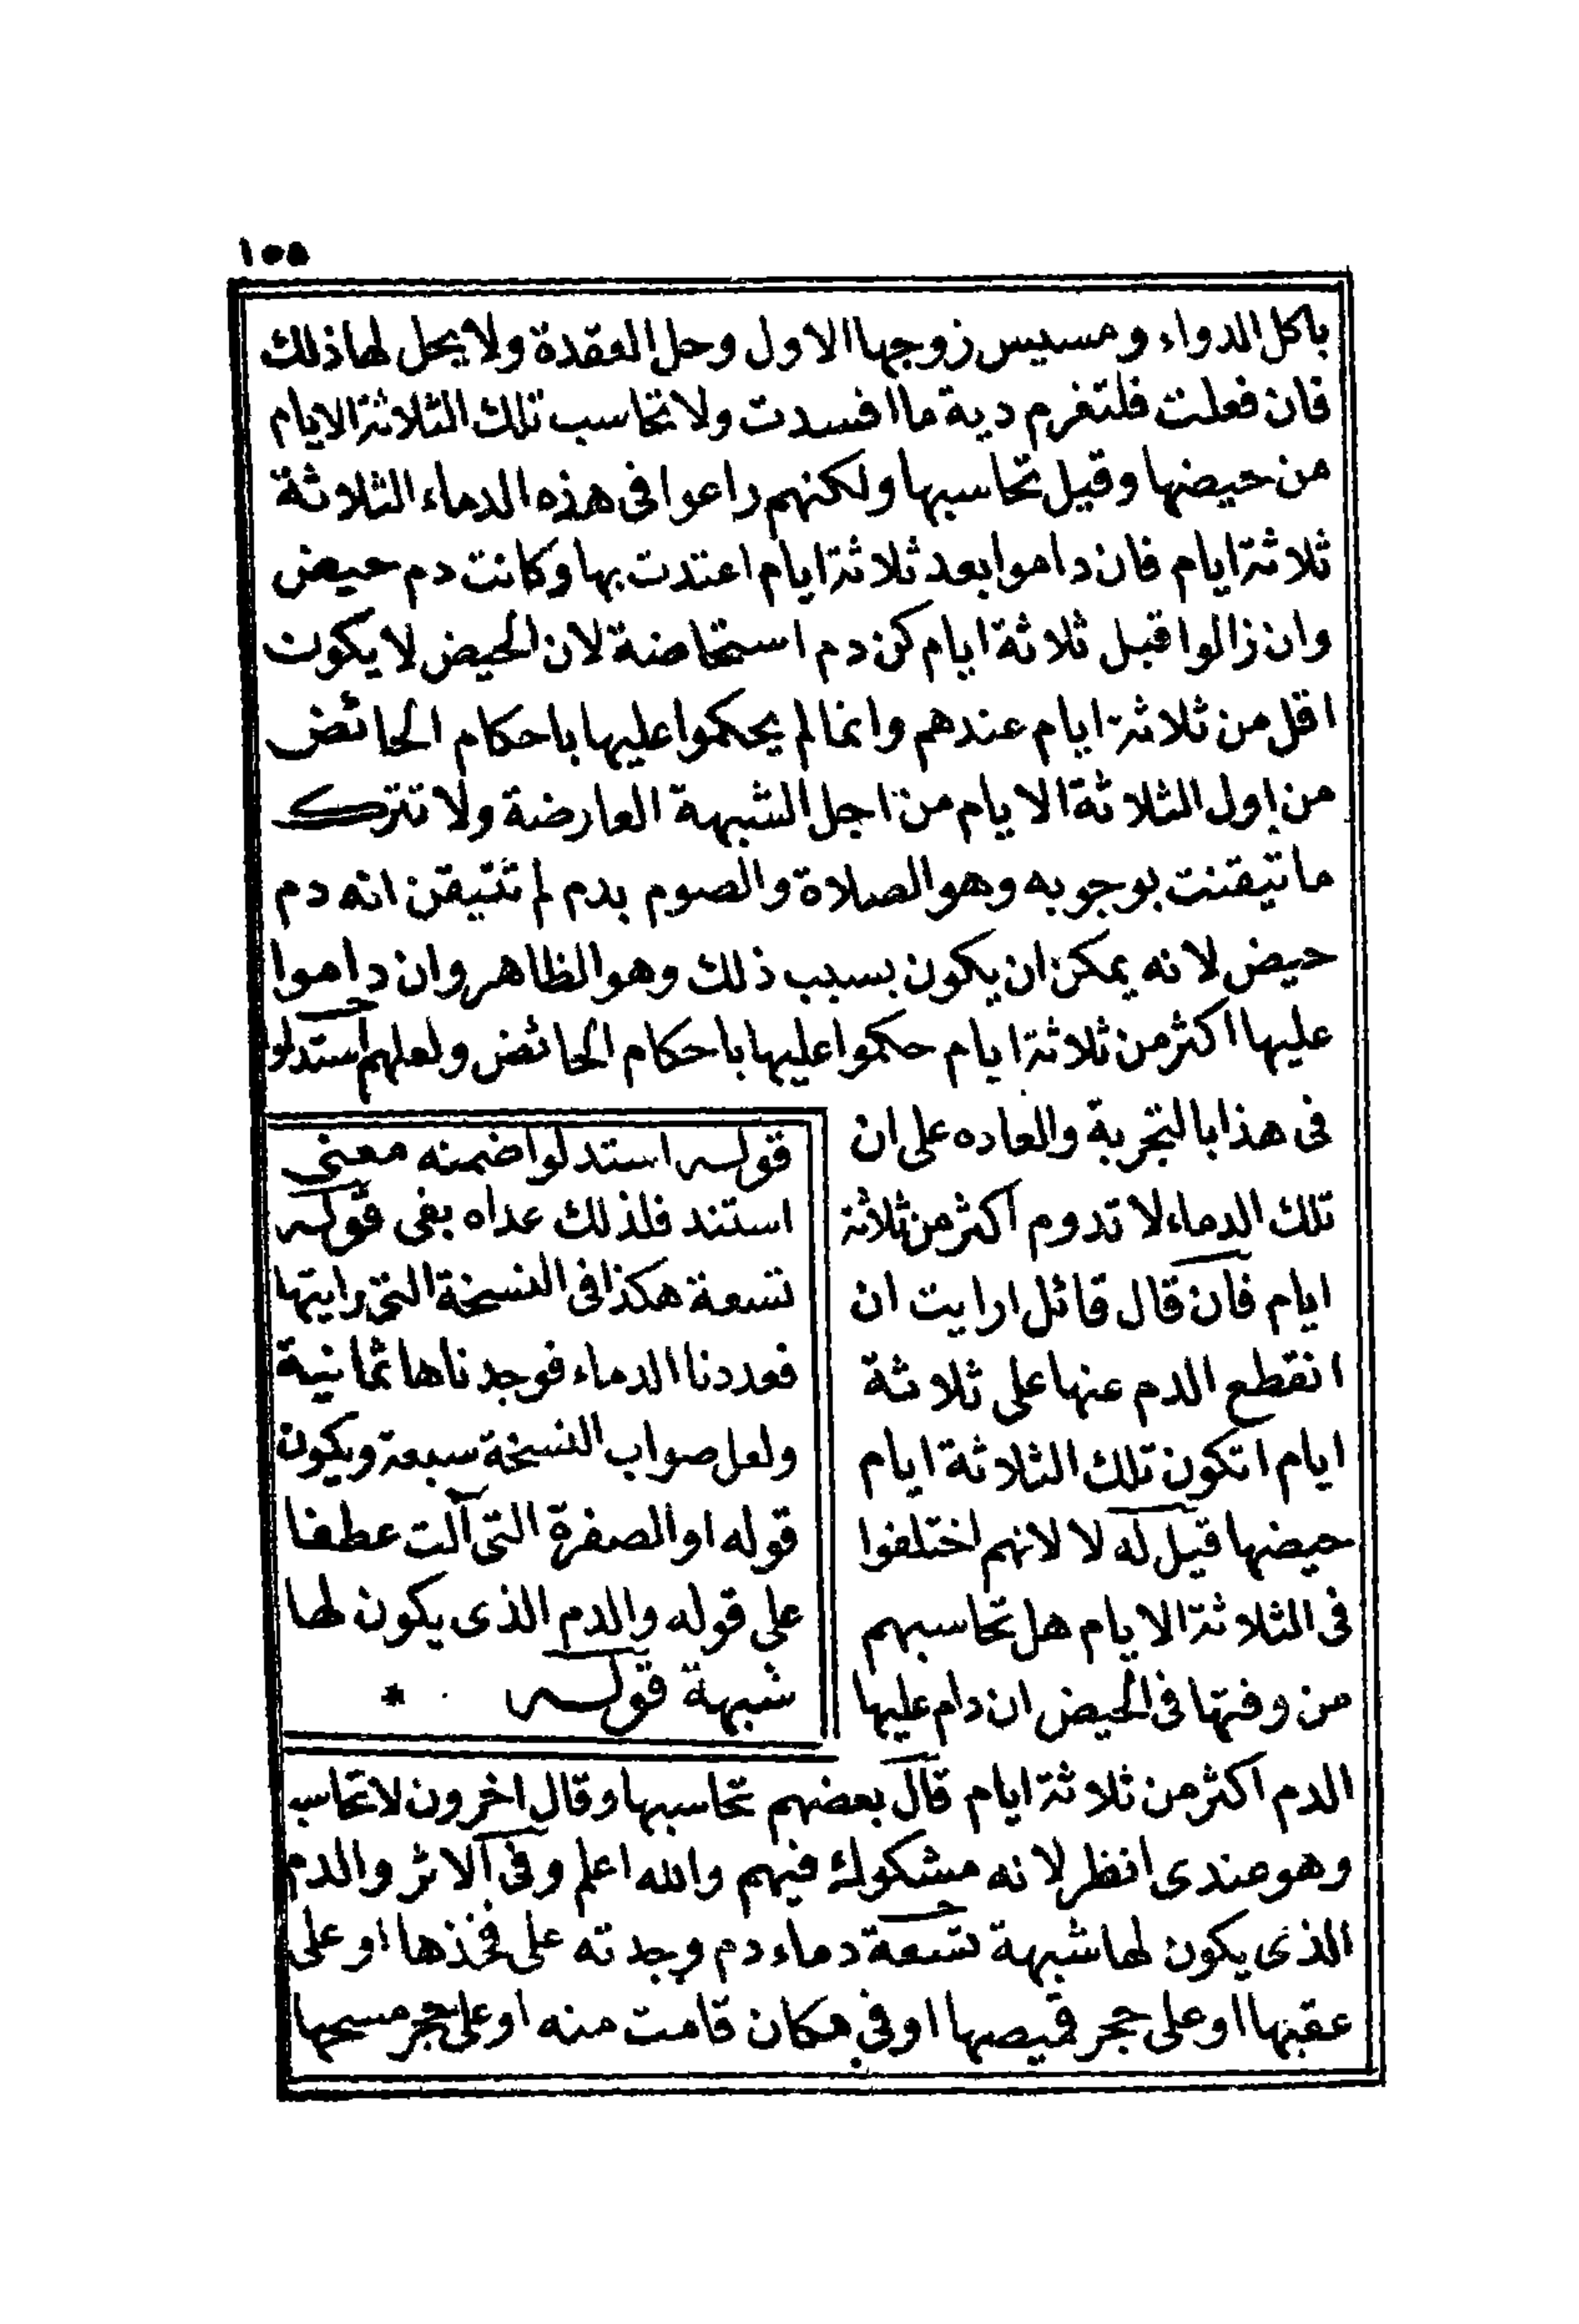 ١٥٥
باكل الدواء ومسيس زوجها الاول وحل العقدة ولا يحل لها ذلك
فان فعلت فلتغرم دية ما افسدت ولا تحاسب تلك الثلاثة الايام
من حيضها وقيل تحاسبها ولكنهم راعوا فى هذه الدماء الثلاثة
ثلاثة ايام فان داموا بعد ثلاثة ايام اعتدت بها وكانت دم حيض
وان زالوا قبل ثلاثة ايام كن دم استحاضة لان الحيض لا يكون
اقل من ثلاثة ايام عندهم وانما لم يحكموا عليها باحكام الحائض
من اول الثلاثة الايام من اجل الشبهة العارضة ولا تترك
ما تيقنت بوجوبه وهو الصلاة والصوم بدم لم تتيقن انه دم
حيض لانه يمكن ان يكون بسبب ذلك وهو الظاهر وان داموا
عليها اكثر من ثلاثة ايام حكموا عليها باحكام الحائض ولعلهم استدلوا
فى هذا بالتجربة والعاده على ان
تلك الدماء لا تدوم اكثر من ثلاثة
ايام فان قال قائل ارايت ان
انقطع الدم عنها على ثلاثة
ايام اتكون تلك الثلاثة ايام
حيضها قيل له لا لانهم اختلفوا
فى الثلاثة الايام هل تحاسبهم
من وقتها فى الحيض ان دام عليها
الدم اكثر من ثلاثة ايام قال بعضهم تحاسبها وقال اخرون لا تحاسب
وهو عندى انظر لانه مشكوك فيهم والله اعلم وفى الاثر والدم
الذى يكون لها شبهة تسعة دماء دم وجدته على فخذها او على
عقبها او على حجر قميصها او في مكان قامت منه او على حجر مسحها
قوله استدلوا ضمنه معنى
استند فلذلك عداه بفى قوله
تسعة هكذا فى النسخة التى رايتها
فعددنا الدماء فوجدناها ثمانية
ولعل صواب النسخة سبعة ويكون
قوله او الصفرة التى آلت عطفا
على قوله والدم الذى يكون لها
شبهة قوله *